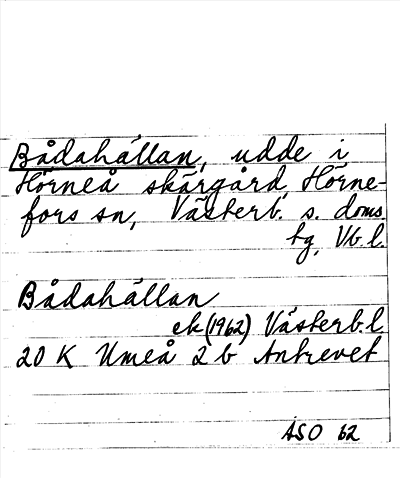 Bådahällan, udde i
Hörneå skärgård, Hörne-
fors sn, Västerb. s. doms.
tg, Vb. l.
Bådahällan
ek (1962) Västerb. l
20 K Umeå 2 b Antrevet
ÅSO 62